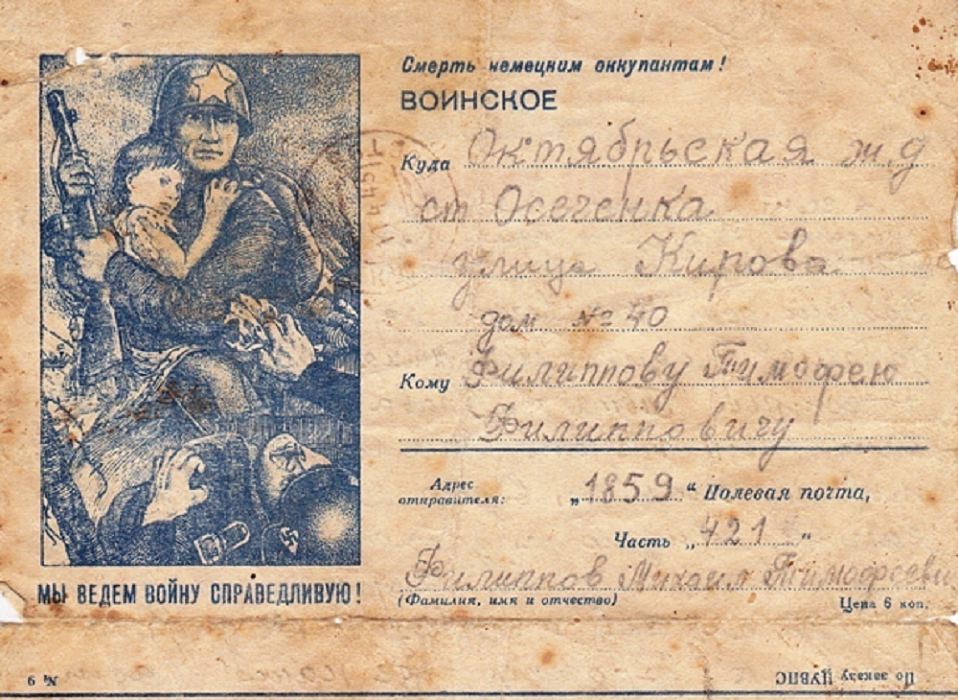 Смерть немецким оккупантам!
ВОИНСКОЕ
Куда Октябрьская ж.д
ст Осеченка
улица Кирова
дом № 40
Кому Филиппову Тимофею
Филипповичу
Адрес отправителя: „1859“ Полевая почта,
Часть „421“
Филиппов Михаил Тимофееви
(Фамилия, имя и отчество)
Цена 6 коп.
МЫ ВЕДЕМ ВОЙНУ СПРАВЕДЛИВУЮ!
№ 9
По заказу ЦУВПС